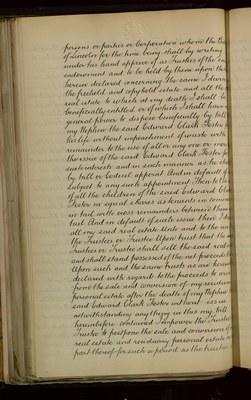 persons or parties or Corporation whom the
of Lincoln for the time being shall by writing
under his hand approve of as Trustees of the
endowment and to be held by them upon the
herein declared concerning the same I devise
the freehold and copyhold estate and all the
real estate to which at my death I shall be
beneficially entitled or of which I shall have
general power to dispose beneficially by
my Nephew the said Edward Clark Foster
his life without impeachment of waste with
remainder to the use of all or any one or more
the issue of the said Edward Clark Foster
estate interests and in such manner as he
by Will or Codicil appoint And in default of
subject to any such appointment Then to the
of all the children of the said Edward Clark
Foster in equal shares as tenants in common
in tail with cross remainders between them
tail And in default of such issue then I
all my said real estate unto and to the use
the Trustees or Trustee Upon trust that the
Trustees or Trustee shall sell the said real
and shall stand possessed of the net proceeds
Upon such and the same trusts as are
declared with regard to the proceeds to
from the sale and conversion of my residuary
personal estate after the death of my Nephew
said Edward Clark Foster without issue
notwithstanding anything in this my Will
hereinbefore contained I empower the Trustees
Trustee to postpone the sale and conversion of
real estate and residuary personal estate
part thereof for such a period as the trustees